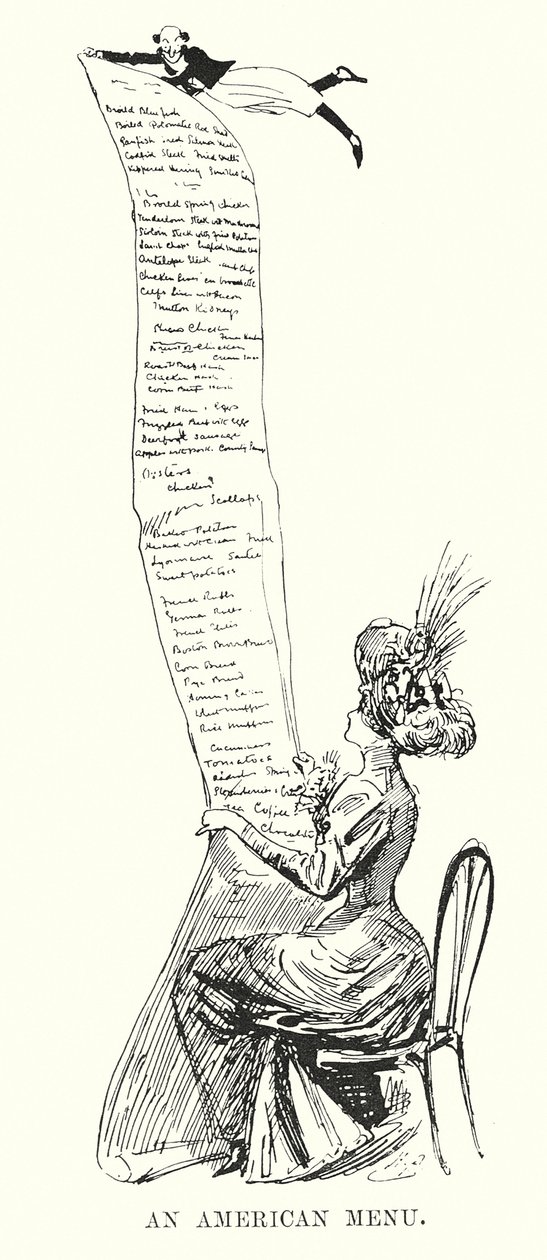 Broild Blue fish
Boiled Potomatic Red Shad
Panfish
Codfish Steak Fried Smelts
Kippered Herring
Broild Spring Chicken
Tenderloin Steak wt Mushrooms
Sirloin Steak with fried Potatoes
Lamb Chops
Antelope Steak
Chicken livers en brochette
Calfs Liver wt Bacon
Mutton Kidneys
Chicken
of Chicken
Roast Beef Hash
Chicken Hash
Corn Beef Hash
Fried Ham & Eggs
Frizzled Beef wt Eggs
Deerfoot Sausage
Apples wt Pork. County
Oysters
Chicken
Scallops
Baked Potatoes
Hashed wt Cream Fried
Lyonnaise Sautee
Sweet potatoes
French Rolls
Vienna Rolls
French
Boston Brown Bread
Corn Bread
Rye Bread
Hominy Cakes
Wheat muffins
Rice muffins
Cucumbers
Tomatoes
Radish Spring
Strawberries & Cream
Tea Coffee
Chocolate
AN AMERICAN MENU.